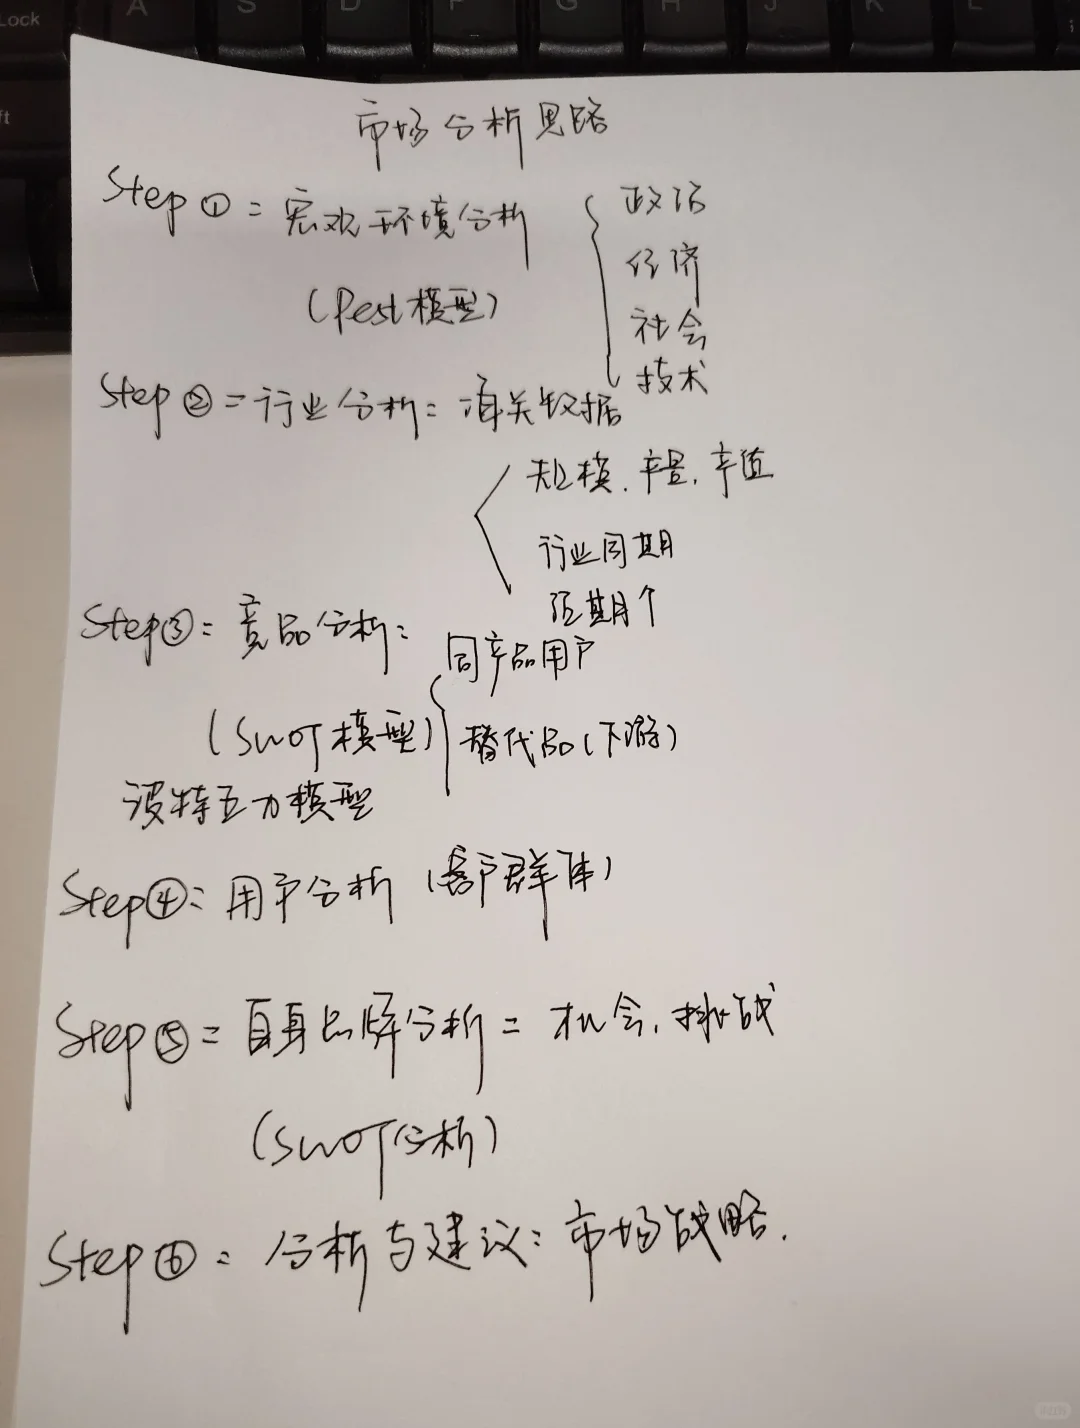 市场分析思路
Step ① = 宏观环境分析
(Pest模型)
政治
经济
社会
技术
Step ② = 行业分析: 海关数据
规模、产量、产值
行业周期
Step ③: 竞品分析:
同产品用户
(SWOT模型)
替代品(下游)
波特五力模型
Step ④: 用户分析 (客户群体)
Step ⑤ = 自身品牌分析 = 机会、挑战
(SWOT分析)
Step ⑥ = 分析与建议: 市场战略.
A S D F G H J K L
Lock